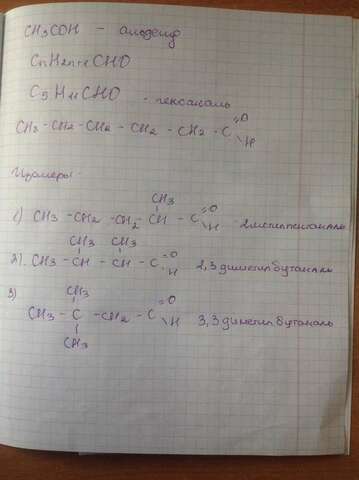 CH3COH - альдегид
CnH2n+1CHO
C5H11CHO - гексаналь
CH3 - CH2 - CH2 - CH2 - CH2 - C =O
H
Изомеры:
CH3
1) CH3 - CH2 - CH2 - CH - C =O - 2метилпентаналь
H
CH3 CH3
2). CH3 - CH - CH - C =O 2,3 диметилбутаналь
H
3) CH3
CH3 - C - CH2 - C =O 3,3 диметил бутаналь
H
CH3